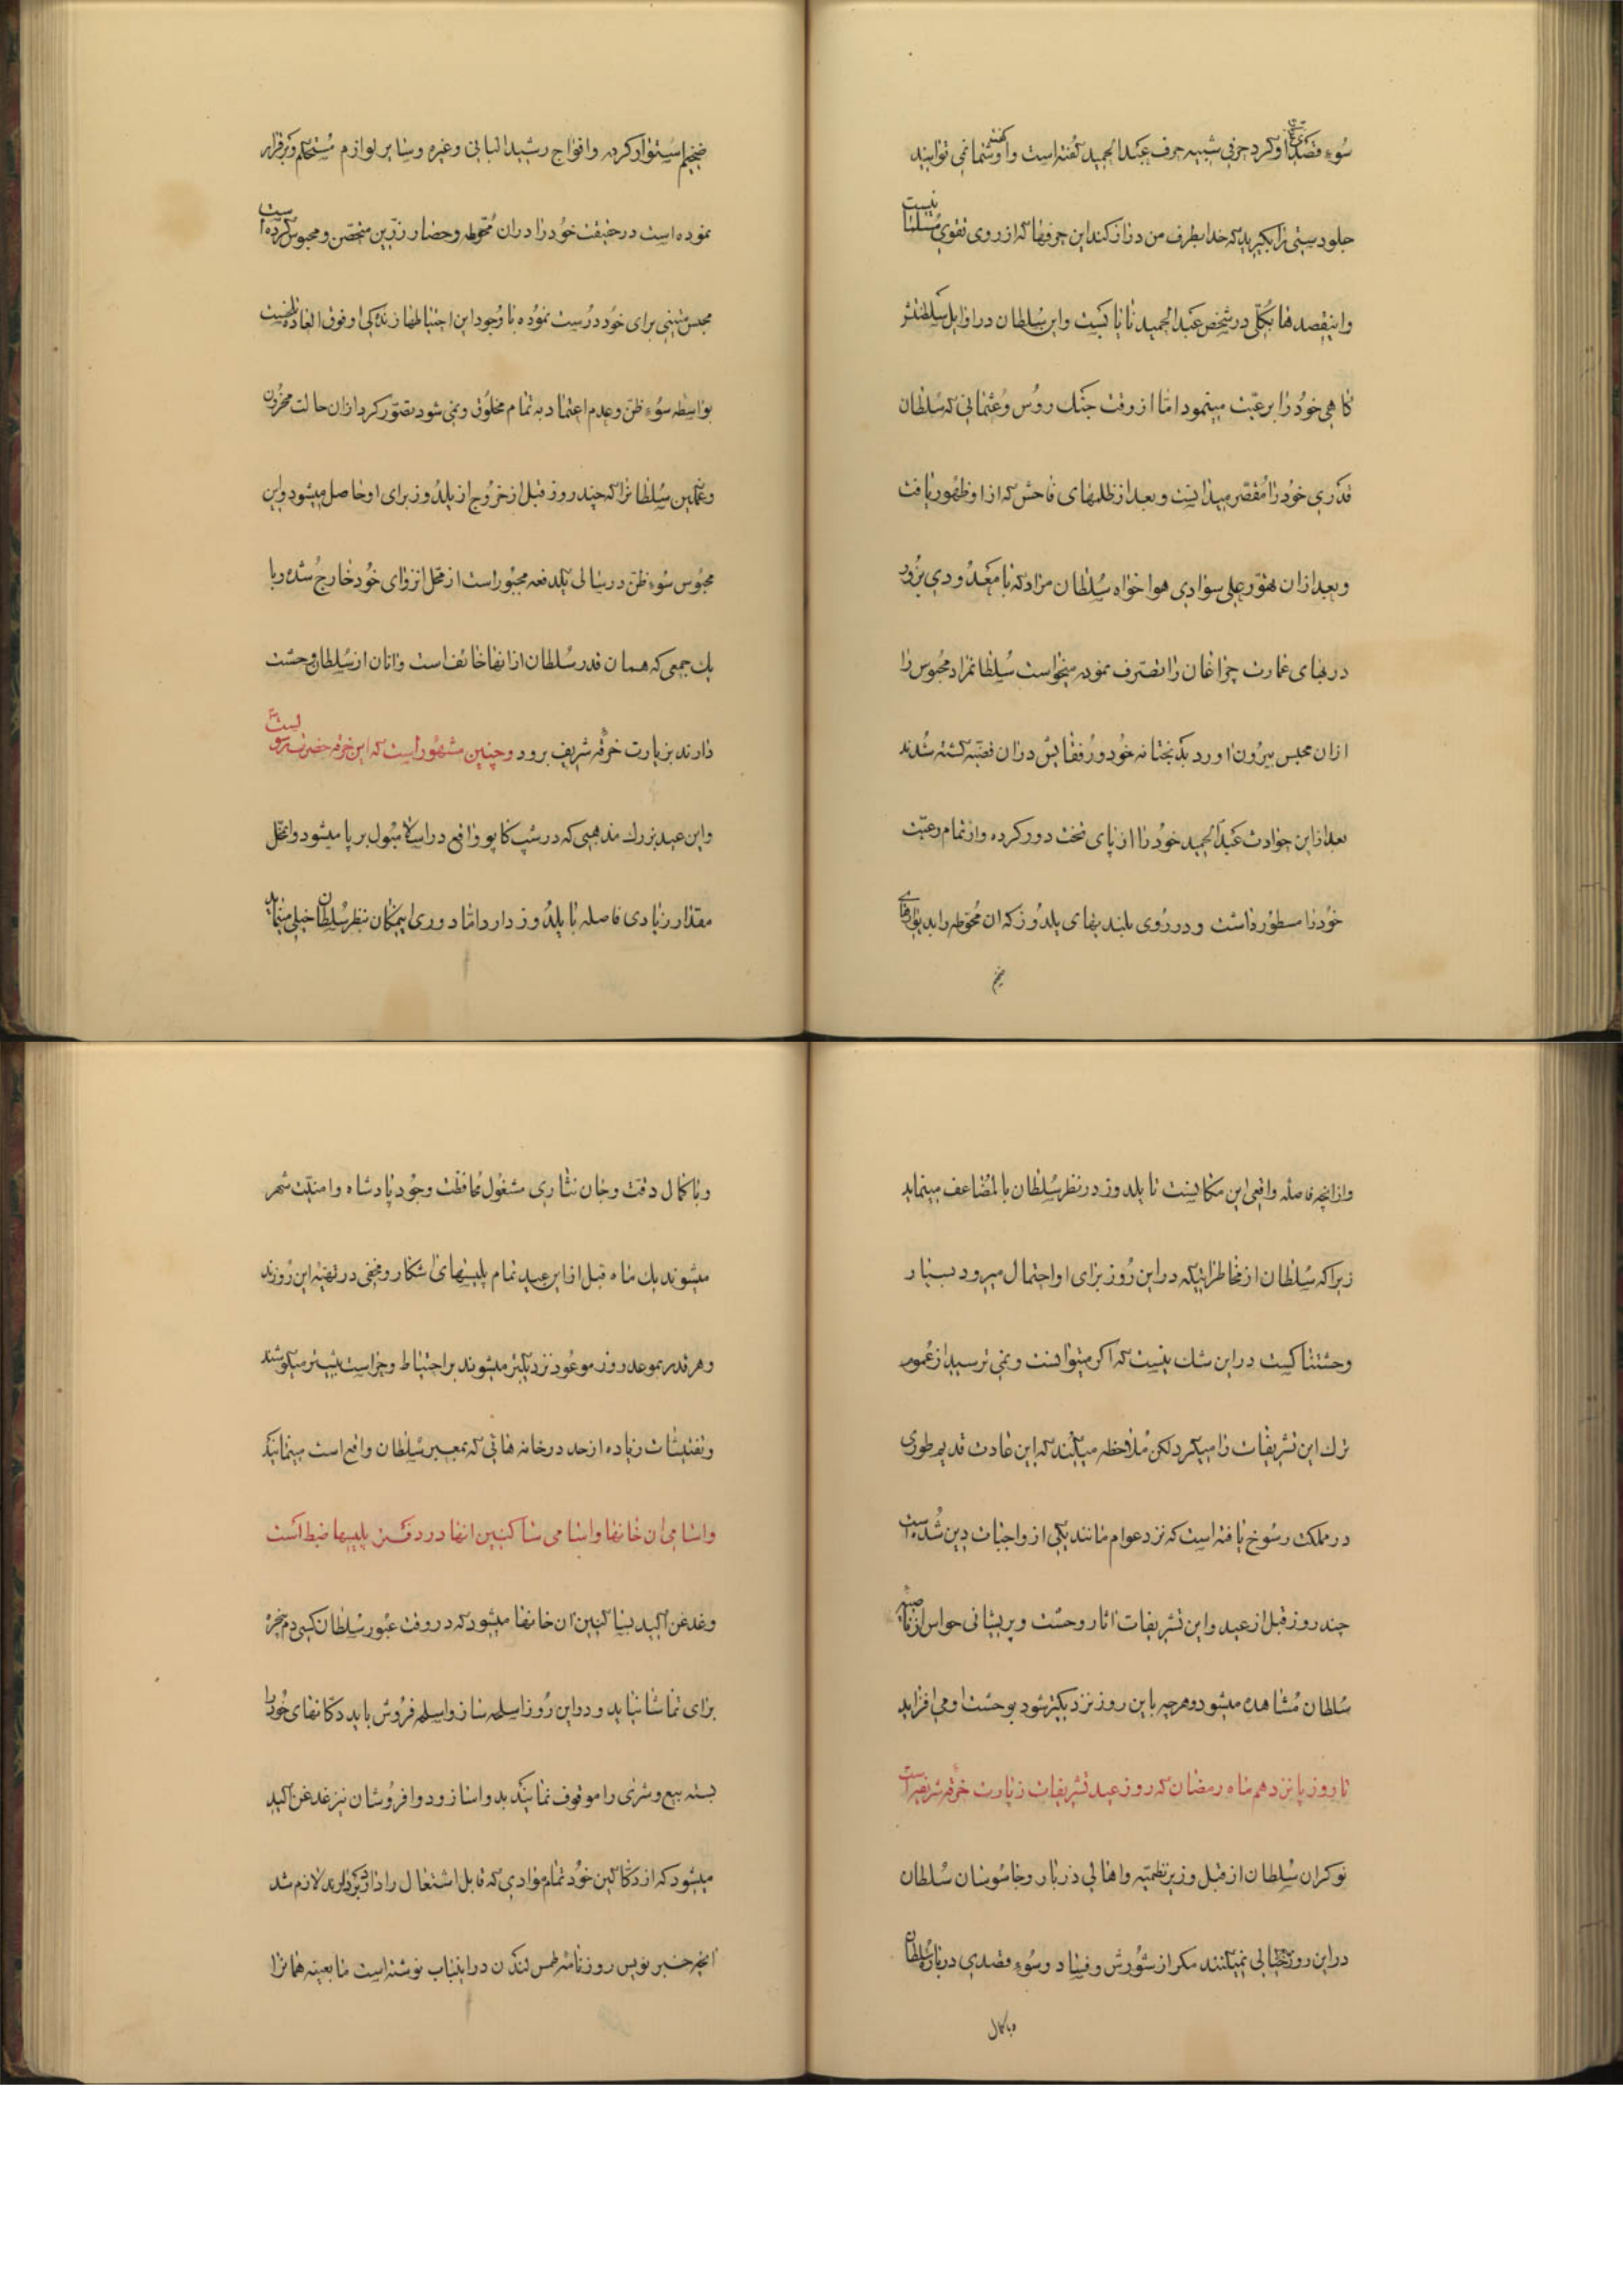 سُوءِ قصدی باو کرد حرفی شبیه حرف عبدالحمید گفته است واو گفته شما نمی توانید
جلو دستی را بگیرید که خدا بطرف من دراز کند این حرفها که از روی تقوی مسلما نیست
واینقصدها بکلی در شخص عبدالحمید نایابست واین سُلطان در اوایل سلطنتش
گاهی خودُ را برعیّت مینمود امّا از وقت جنگ روُس وعُثمانی که سُلطان
قدری خودُ را مُقصّر میدانست وبعد از ظلمهای فاحش که از او ظهُور یافت
وبعد از آن تهوّر علی سوادی هوا خواه سُلطان مراد که با معدُودی بزُور
دربهای عمارت چراغان را تصّرف نموده میخواست سُلطانمراد محبُوس را
از ان محبس بیرُون اورد بدبختانه خُود ورُفقایش در ان قضیّه کشته شُدند
بعد از این حوادث عبدالحمید خوُد را از پای تخت دور کرده واز تمام رعیّت
خوُد را مستور داشت ودر رُوی بلندیهای یلدُوز که ان مُحوّطه را بدیوارهای
ضخیم
ضخیم استوار کرده وافواج رشید البانی وغیره وسایر لوازم مُستحکم وبرقرار
نموده است در حقیقت خُود را در ان مُحوّطه وحصار رزین متحصّن ومحبوس کرده است
محبس متینی برای خُود دُرست نموُده با وُجود این احتیاطها زندگی او فوق العاده سخت
بواسطه سُوءِ ظنّ وعدم اعتماد به تمام مخلُوق ونمی شود تصّور کرد از ان حالت محزُون
وغمگین سُلطانرا که چند روز قبل از خرُوج از یلدُوز برای او حاصل میشود واین
محبُوس سُوءِ ظنّ در سالی یکدفعه مجبور است از محل انزوای خُود خارجُ شده وبا
یک جمعی که همان قدر سُلطان از انها خائف است وانان از سُلطان وحشت
دارند بزیارت خرقه شریف برود وچنین مشهُور است که این خرقه حضرت رسولست
واین عید بزرک مذهبی که در سپ کاپو واقع در اسلامبُول بر پا میشود وانمحل
مقدار زیادی فاصله با یلدُوز دارد امّا دوری اینمکان بنظر سُلطان خیلی مینماید
واز انچه فاصله واقعی این مکانست تا یلدوز در نظر سُلطان بالمُضاعف مینماید
زیرا که سُلطان از مخاطراتیکه در این رُوز برای او احتمال میرود بسیار
وحشتناکست در این شک نیست که اگر میتوانست ونمی ترسید از عُموم
ترک این تشریفات را میکرد لکن مُلاحظه میکند که این عادت قدیم طوری
در مملکت رسُوخ یافته است که نزد عوام مانند یکی از واجبات دین شُده است
چند روز قبل از عید واین تشریفات اثار وحشت وپریشانی حواس از ناصیه
سُلطان مُشاهده میشود وهرچه باین روز نزدیکتر شود بوحشت او می افزاید
تا روز پانزدهم ماه رمضان که روز عید تشریفات زیارت خرقه شریف است
نوکران سُلطان از قبل وزیر نظمیّه واهالی دربار وجاسُوسان سُلطان
در این روز خیالی نمیکنند مکر از شُورش وفساد وسُوءِ قصدی درباره سُلطان
وباکمال
وباکمال دقت وجان نثاری مشغُول مُحافظت وجُود پادشاه وامنیّت شهر
میشوند یک ماه قبل از این عید تمام پلیسهای اشکار ومخفی در تهیّه این رُوزند
وهر قدر بموعد روز موعُود نزدیکتر میشوند بر احتیاط وحراست بیشتر میکوشند
وتفتیشات زیاده از حد در خانه هائی که بمعبر سُلطان واقع است مینمایند
واسامی ان خانها واسامی ساکنین انها در دفتر پلیسها ضبط است
وغدغن اکید بساکنین ان خانها میشود که در وقت عبُور سُلطان کسی دم پنجره
برای تماشا نیاید ودر این رُوز اسلحه ساز واسلحه فرُوش باید دکانهای خُود را
بسته بیع وشری را موقوف نمایند بدواساز ودوا فروُشان نیز غدغن اکید
میشود که از دکاکین خُود تمام موادی که قابل اشتعال را دارد بردارند لازم شد
انچه خبر نویس روزنامهٔ طمس لندن در اینباب نوشته است ما بعینه همانرا